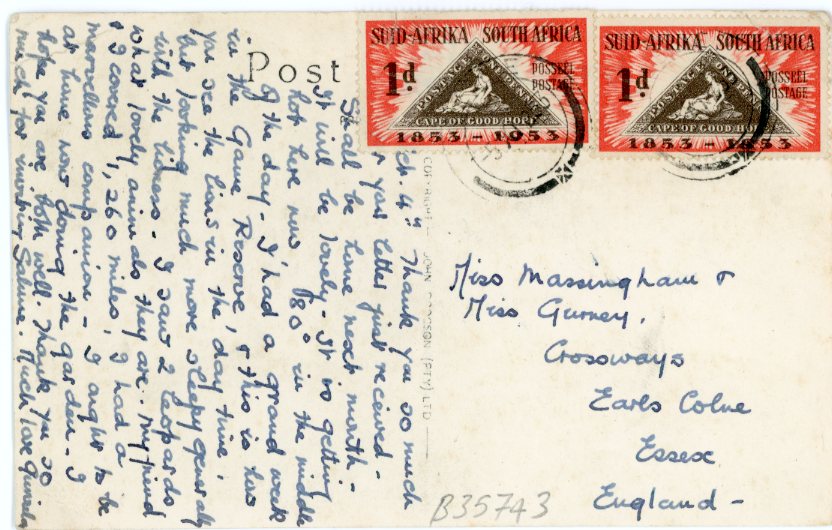 Post
SUID-AFRIKA SOUTH AFRICA
1d
POSSEËL
POSTAGE
POSTAGE ONE PENNY
CAPE OF GOOD HOPE
1853 - 1953
SUID-AFRIKA SOUTH AFRICA
1d
POSSEËL
POSTAGE
POSTAGE ONE PENNY
CAPE OF GOOD HOPE
1853 - 1953
4th Thank you so much
your letter just received -
Shall be home next month -
It will be lovely. It is getting
hot here now 80° in the middle
of the day - I had a grand week
in the Game Reserve, & this is how
you see the lions in the day time,
but looking much more sleepy generally
with the lioness - I saw 2 leopards
what lovely animals they are. My friend
& I covered 1,260 miles, I had a
marvellous companion - I ought to be
at home now doing the garden - I
hope you are both well. Thank you so
much for inviting Much love
COPYRIGHT — JOHN (PTY) LTD
Miss Massingham &
Miss Gurney,
Crossways
Earls Colne
Essex
England -
B35743